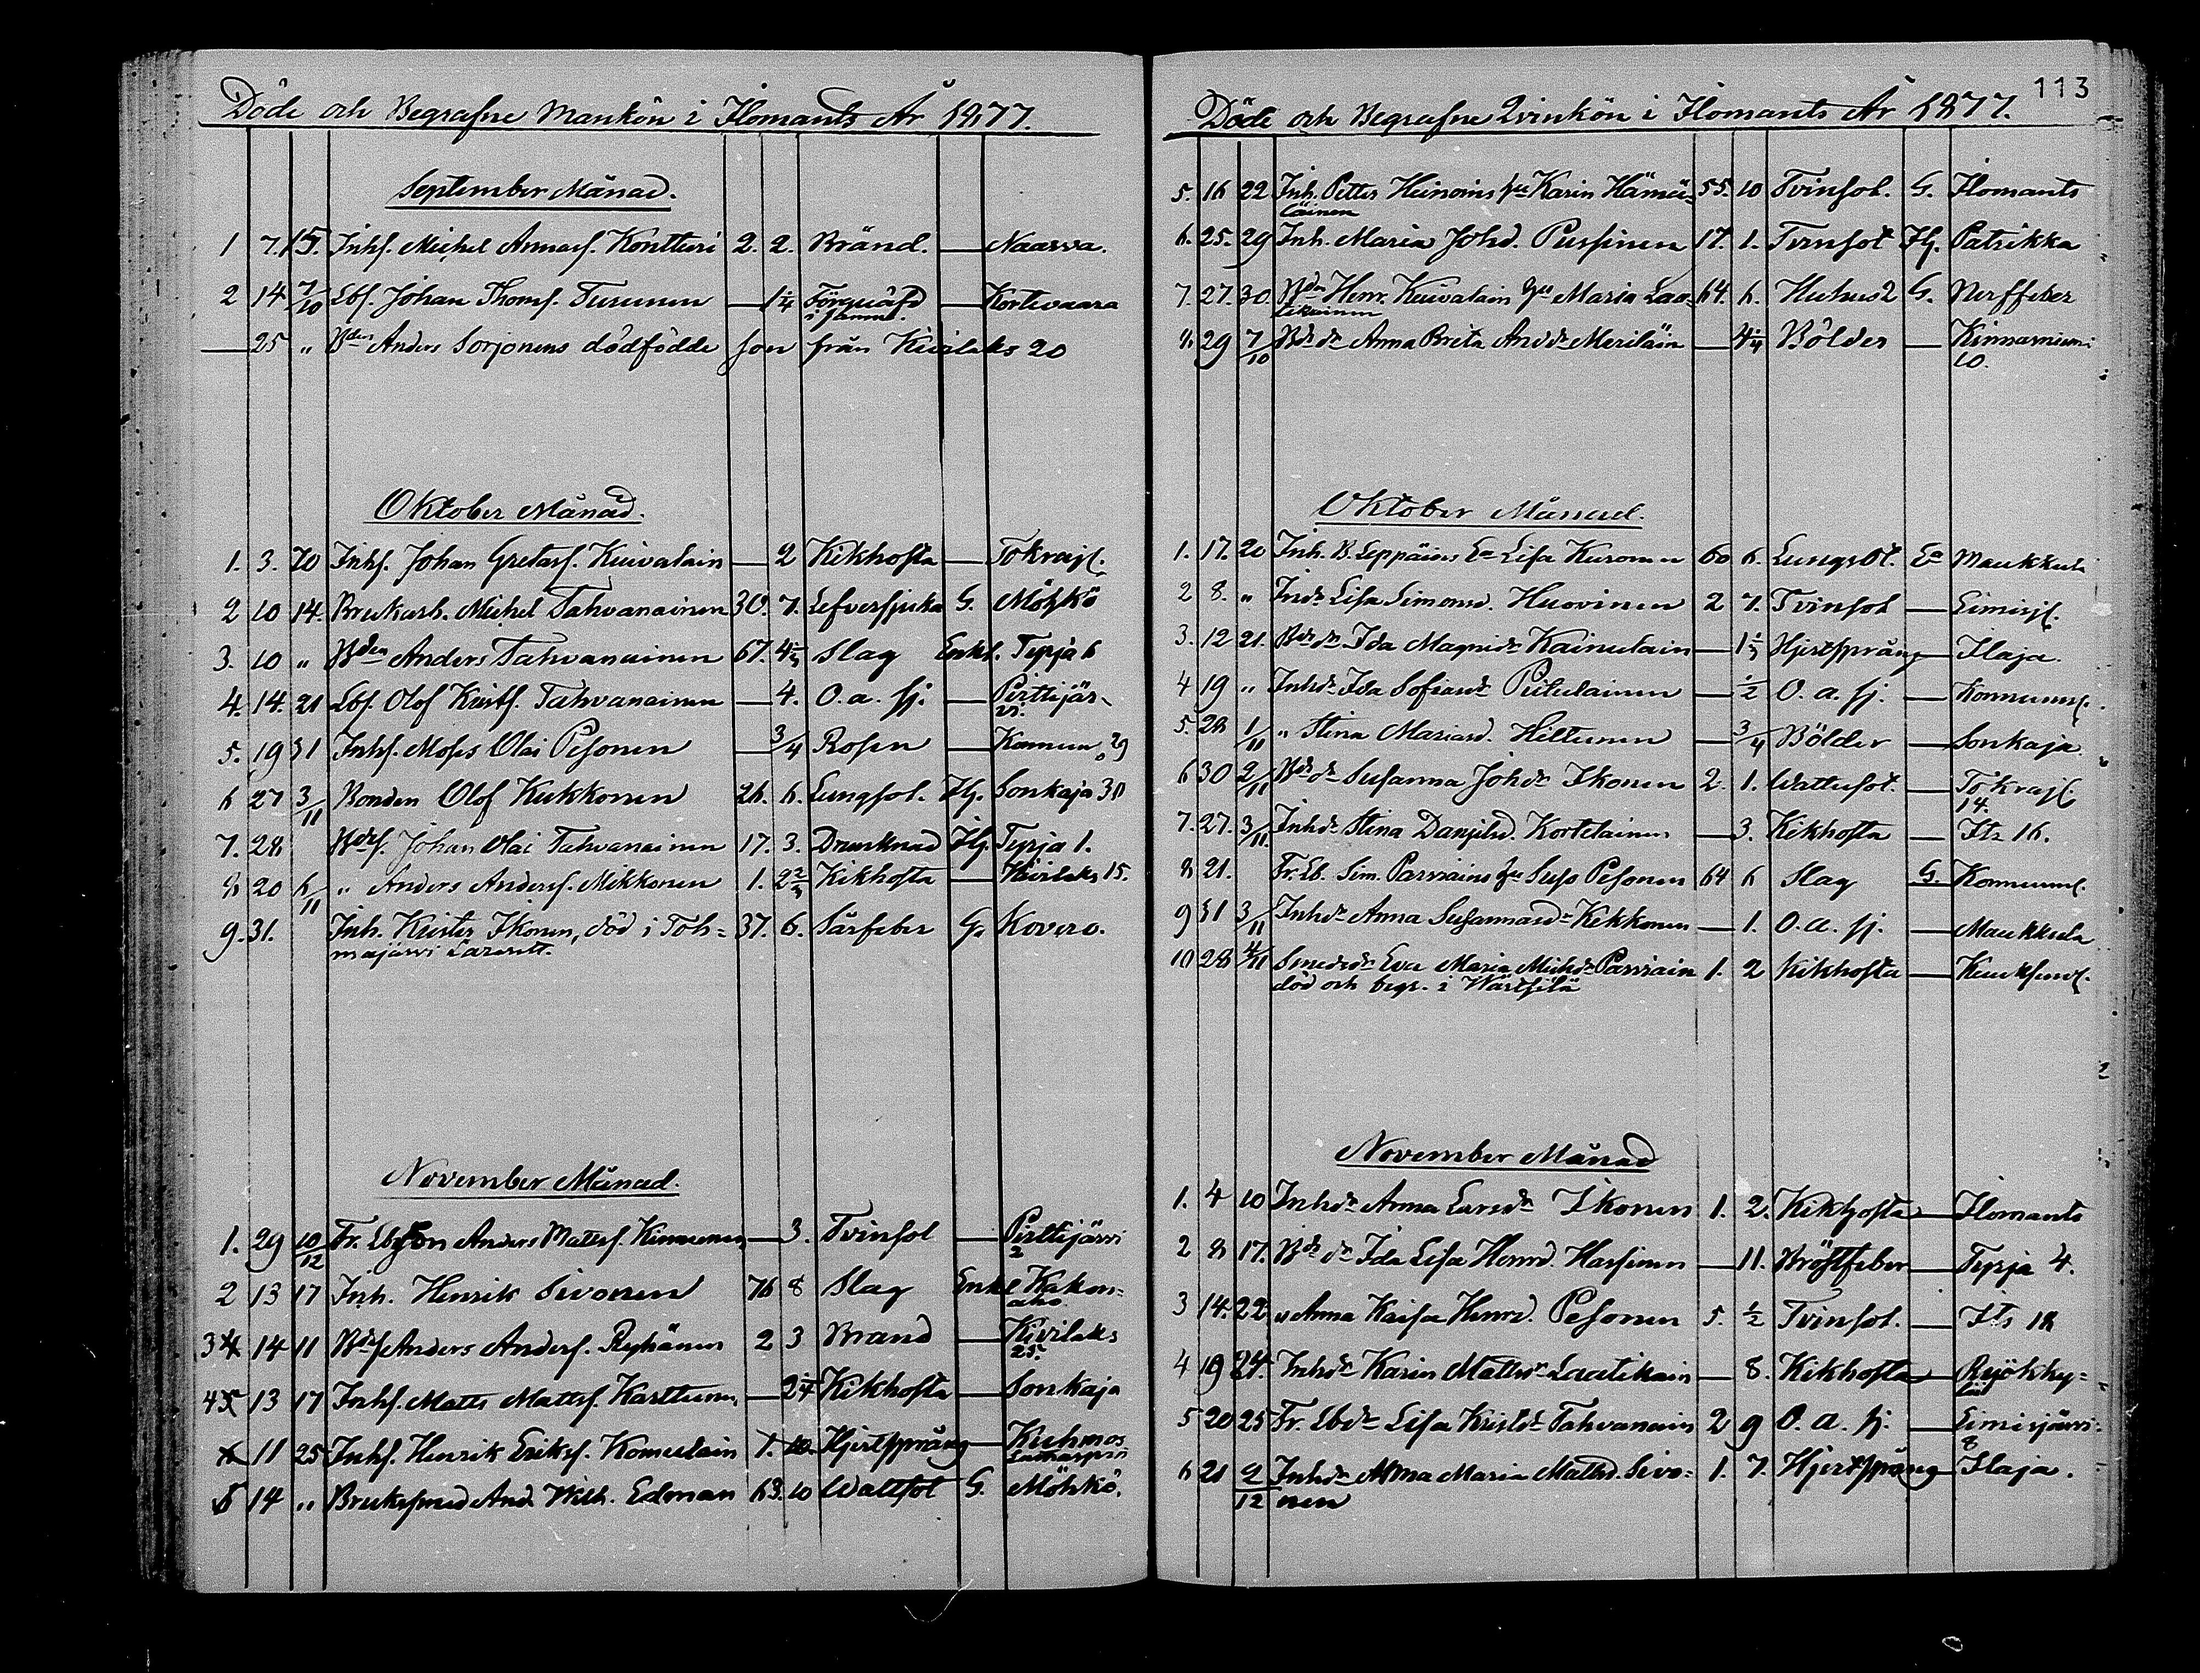 Döde och Begrafne Mankön i Ilomants År 1877.
September Månad.
1 7. 15. Inhs. Michel Annas. Kontturi 2. 2. Bränd. — Naarva.
2 14 7/10 Lbs. Johan Thoms. Turunen — 1 1/4 Förquäfd — Kortevaara
i sömn.
— 25 " Bden Anders Sorjonens dödfödde son från Kivilaks 20
Oktober Månad.
1. 3. 20 Inhs. Johan Gretas. Kuivalain — 2 Kikhosta — Tokrajs.
2 10 14. Bruksarb. Michel Tahvanainen 30. 7. Lefversjuka G. Möhkö
3. 10 " Bden Anders Tahvanainen 67. Slag Enkl. Tyrjä 6
4. 14. 21 Lbs. Olof Krists. Tahvanainen — 4. O. a. sj. — Pirttijär-
vi.
5. 19 31 Inhs. Moses Olai Pesonen — 3/4 Rosen — 29
6 27 3/11 Bonden Olof Kukkonen 26. 6. Lungsot. Hg. Sonkaja 30
7. 28 Bds. Johan Olai Tahvanainen 17. 3. Drunknad Hg. Tyrja 1.
8 20 6/11 " Anders Anders. Mikkonen 1. Kikhosta — 15.
9. 31. Inh. Krister Ikonen, död i Toh- 37. 6. Sårfeber G. Kovero.
majärvi Lazarett.
November Månad.
1. 29 10/12 Fr. Lbs son Anders Matts. Kinnunen — 3. Tvinsot — Pirttijärvi
2
2 13 17 Inh. Henrik Sivonen 76 8 Slag Enkl Kakon-
aho
3 4 14 11 Bds Anders Anders. Ryhänen 2 3 Brand — Kivilaks
25.
4 5 13 17 Inhs. Matts Matts. Karttunen — 2 1/4 Kikhosta — Sonkaja
11 25 Inhs. Henrik Eriks. Komulain 1. 10. Hjertsprång —
14 " Bruksmed And. Wilh. Edman 63. 10 Wattsot G. Möhkö.
113
Döde och Begrafne Qvinkön i Ilomants År 1877.
5. 16 22 Inh. Petter Heinoins hu Karin Hämä- 55. 10 Tvinsot. G. Ilomants
läinen
6. 25. 29 Inh. Maria Johd. Pussinen 17. 1. Tvinsot Hg. Patrikka
7. 27. 30. Bden Henr. Kuivalain hu Maria Laa- 64. 6. G. Nerffeber
tikainen
8 29 7/10 Bds dr Anna Brita And dr Meriläin — 4 1/4 Bölder — Kinnarniemi
10.
Oktober Månad.
1. 17. 20 Inh. B. Leppäins Ea Lisa Kuronen 60 6. Lungsot. Ea Maukkula
2 8. " Inhdr Lisa Simonsd. Huovinen 2 7. Tvinsot — Liminjs.
3. 12 21. Bds dr Ida Magnidr Kainulain — Hjertsprång — Ilaja.
4 19 " Inhdr Ida Sofiasdr Piitulainen — 1/2 O. a. sj. —
5. 28 1/11 " Stina Mariasd. Hiltunen — 3/4 Bölder — Sonkaja
6 30 2/11 Bds dr Susanna Johdr Ikonen 2. 1. Wattusot. — Tokrajs.
14.
7. 27. 3/11 Inhdr Stina Danjelsd. Kortelainen — 3. Kikhosta — Its 16.
8 21. Fr. Lb. Sim. Parviains hu Susa Pesonen 64 6 Slag G.
9 31 3/11 Inhdr Anna Susannasdr Kekkonen — 1. O. a. sj. — Maukkula
10 28 4/11 Smedsdr Eva Maria Michdr Parviain 1. 2 Kikhosta —
död och begr. i Wärtsilä
November Månad
1. 4 10 Inhdr Anna Larsdr Ikonen 1. 2. Kikhosta — Ilomants
2 8 17. Bds dr Ida Lisa Henrd. Hassinen — 11. Bröstfeber — Tyrja 4.
3 14. 22 " Anna Kaisa Henrd. Pesonen 5. 1/2 Tvinsot. — Its 18
4 19 24. Inhdr Karin Mattsdr Laatikain — 8. Kikhosta — Ryökky-
lä
5 20 25 Fr. Lbdr Lisa Kristdr Tahvanain 2 9 O. a. sj. — Liminjärvi
8
6 21 9/12 Inhdr Anna Maria Mattsd. Sivo- 1. 7. Hjertsprång — Ilaja.
nen